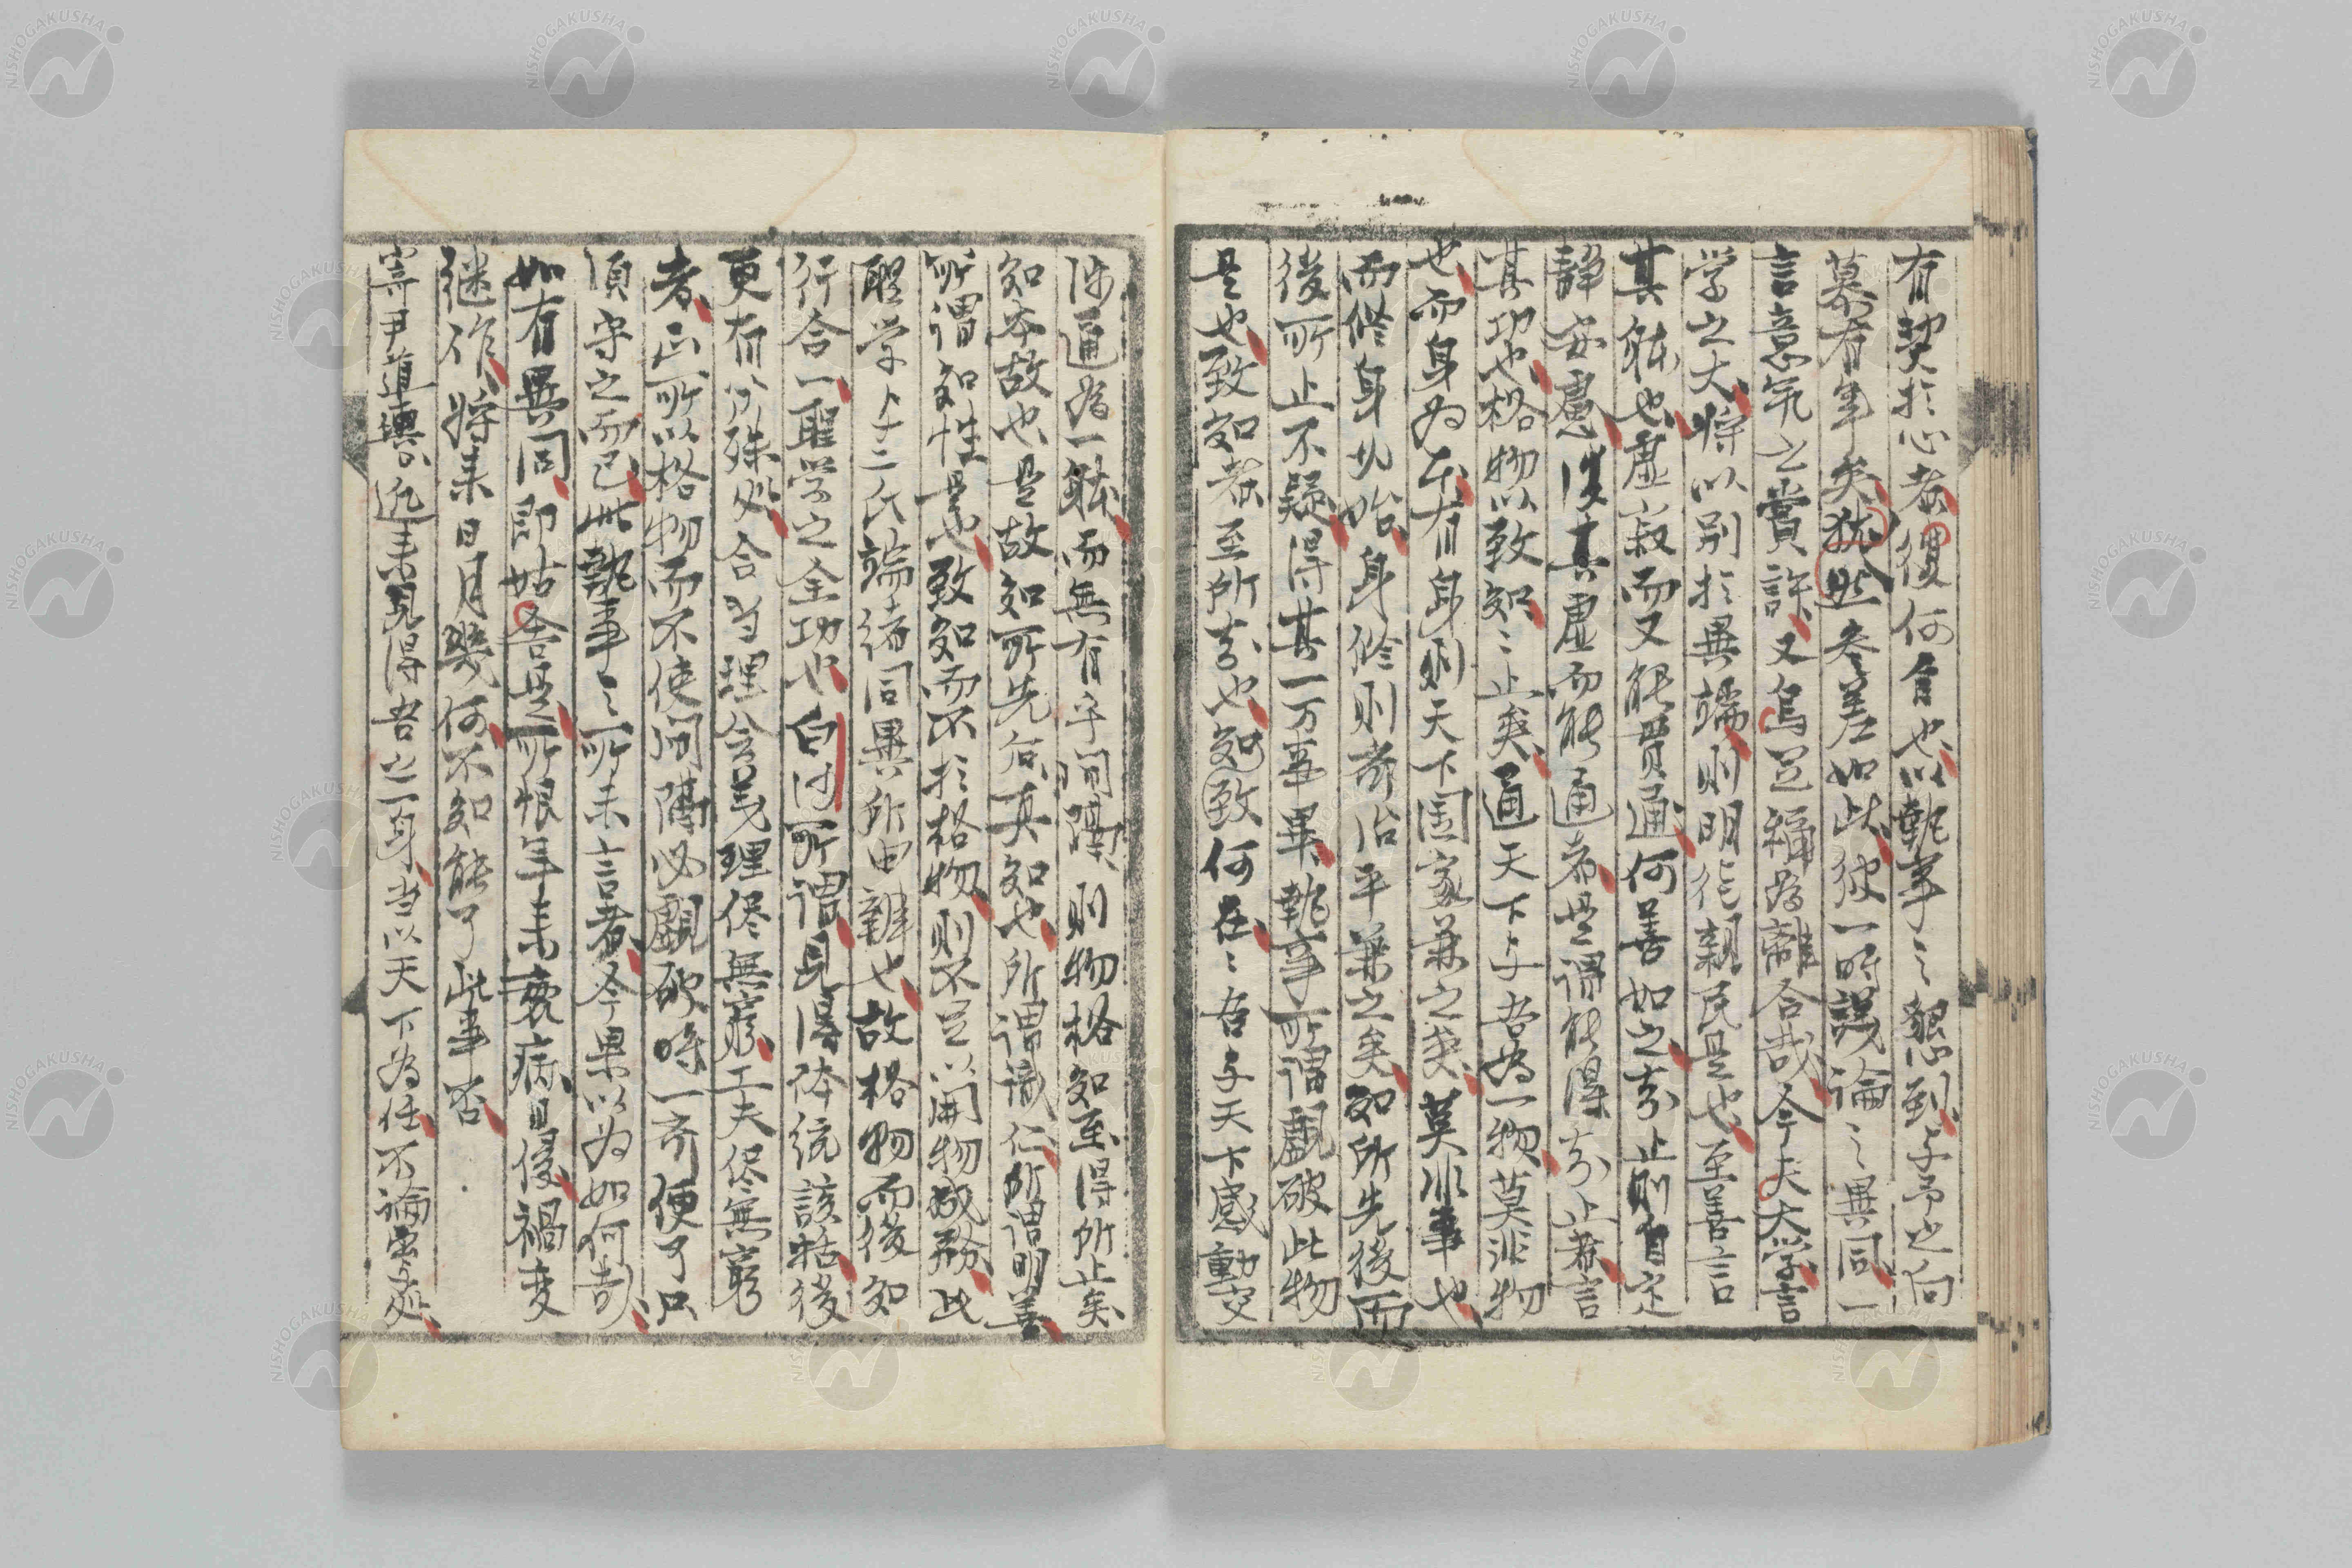 有契於心者復何自也以執事之懇到与予之向
慕有年矣猶然参差如此彼一時議論之異同一
言意気之賞許又烏足稱為離合哉今夫大学言
学之大将以別於異端則明徳親民是也至善言
其躰也虚寂而又能貫通何善如之知止則自定
静安慮復其虚而能通者是謂能得知止者言
其功也格物以致知知止矣通天下与吾為一物莫非物
也而身為本有身則天下国家兼之矣莫非事也
而修身为始身修則斉治平兼之矣知所先後而
後所止不疑得其一万事畢執事所謂覷破此物
是也致知者至所知也知致何在在吾与天下感動交
涉通為一躰而無有乎間隔則物格知至得所止矣
知本故也是故知所先后真知也所謂識仁所謂明善
所謂知性是也致知而不於格物則不足以開物成務此
聖学与二氏端緒同異所由辨也故格物而後知
行合一聖学之全功也白沙所謂見得体統該括後
更有分殊処合当理会義理侭無窮工夫侭無窮
者正所以格物而不使間隔必覷破時一斉便了只
須守之而已此執事之所未言者今果以為如何哉
如有異同即姑舎是所恨年来衰病且侵禍変
継作将来日月幾何不知能了此事否
寄尹道輿近来見得吾之一身当以天下為任不論出処